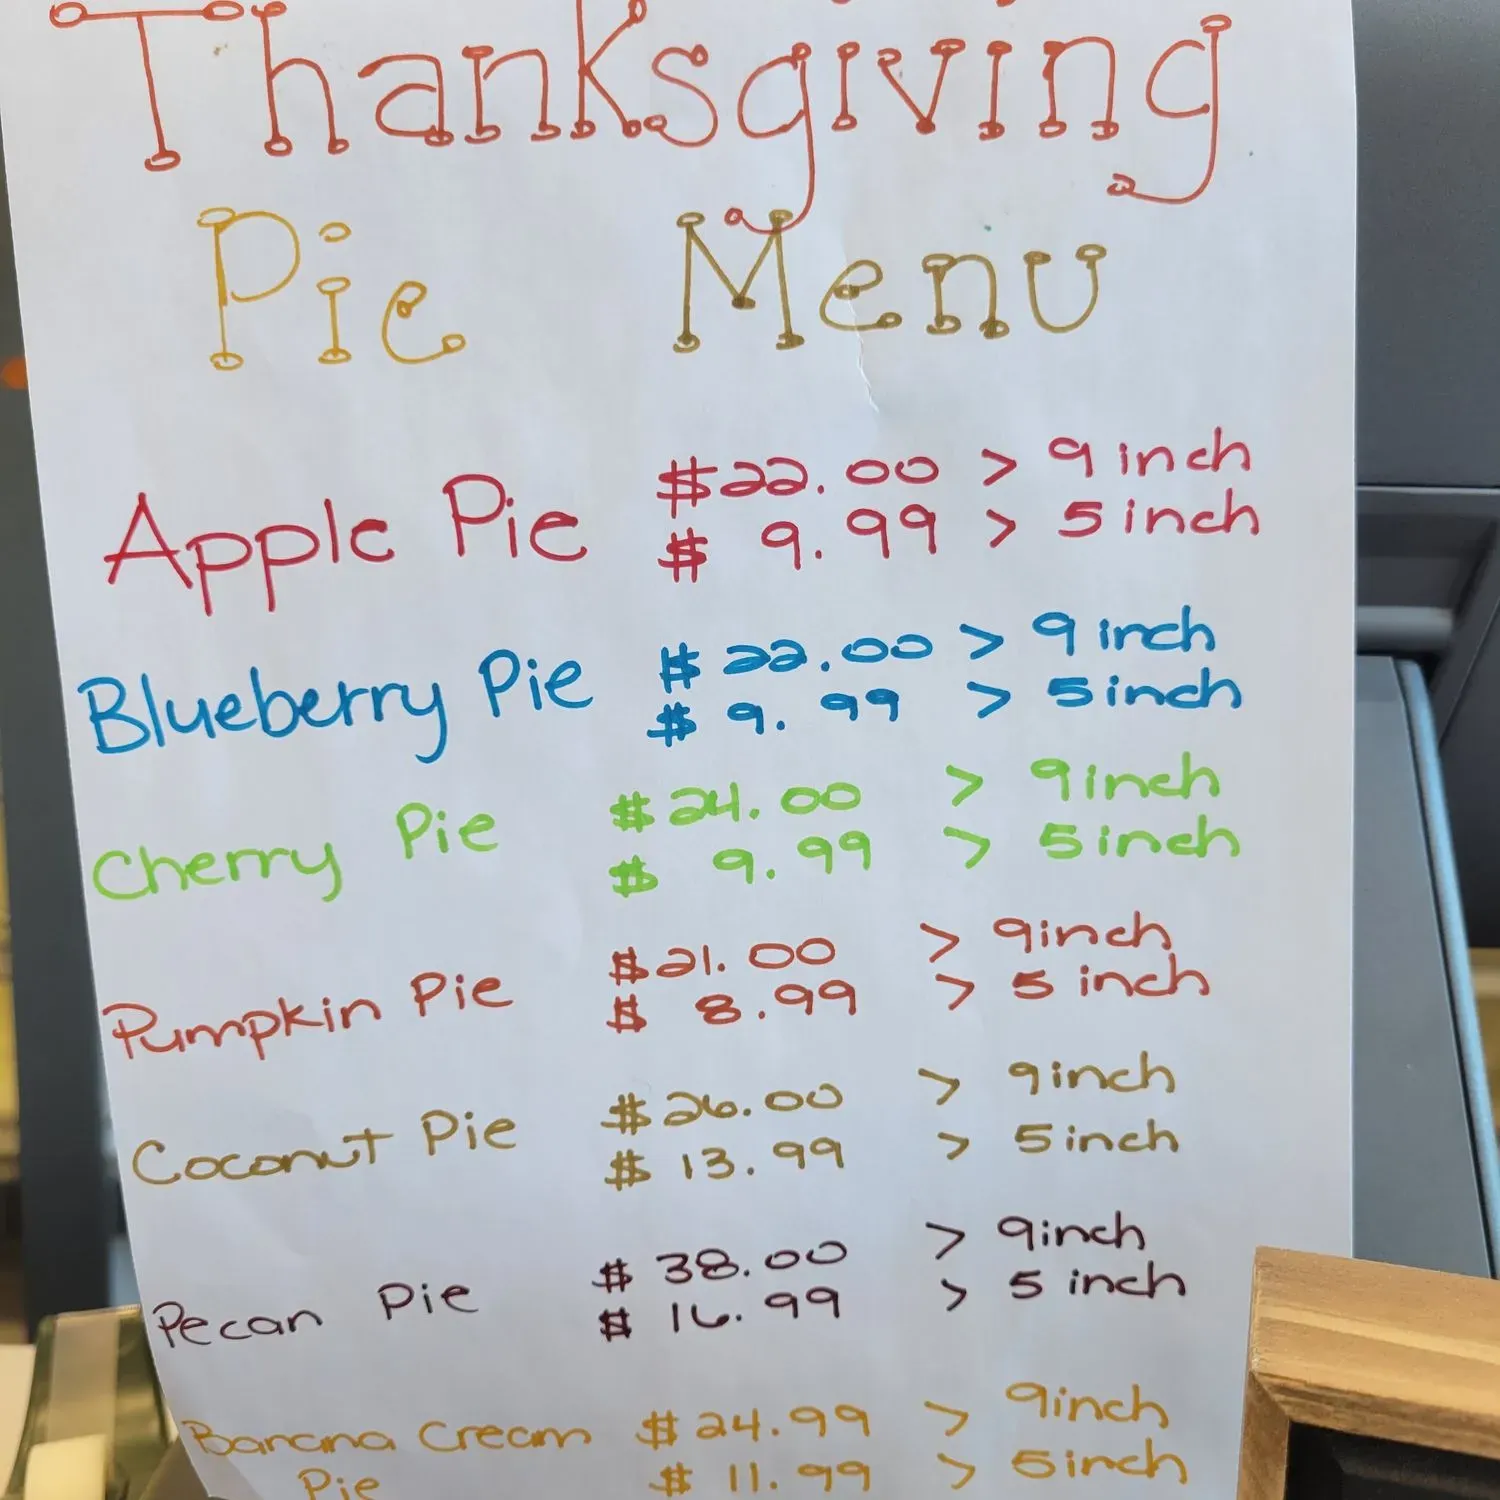 Thanksgiving
Pie Menu
Apple Pie $22.00 > 9 inch
$ 9.99 > 5 inch
Blueberry Pie $22.00 > 9 inch
$ 9.99 > 5 inch
Cherry Pie $24.00 > 9 inch
$ 9.99 > 5 inch
Pumpkin Pie $21.00 > 9 inch
$ 8.99 > 5 inch
Coconut Pie $26.00 > 9 inch
$ 13.99 > 5 inch
Pecan Pie $ 38.00 > 9 inch
$ 16.99 > 5 inch
Banana Cream $24.99 > 9 inch
Pie $ 11.99 > 5 inch